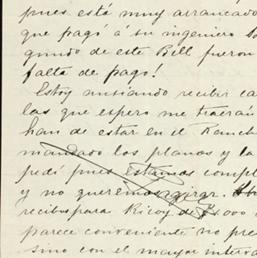 pues está muy arrancado
que pagó a su ingeniero
de este Bell fueron
falta de pago!
Estoy ansiando recibir
las que espero me traerán
han de estar en el Ranch
mandado los planos y la
pedí pues estamos compl
y no queremos girar
recibir para Ricoy de
parece conveniente no pre
sino con el mayor interva